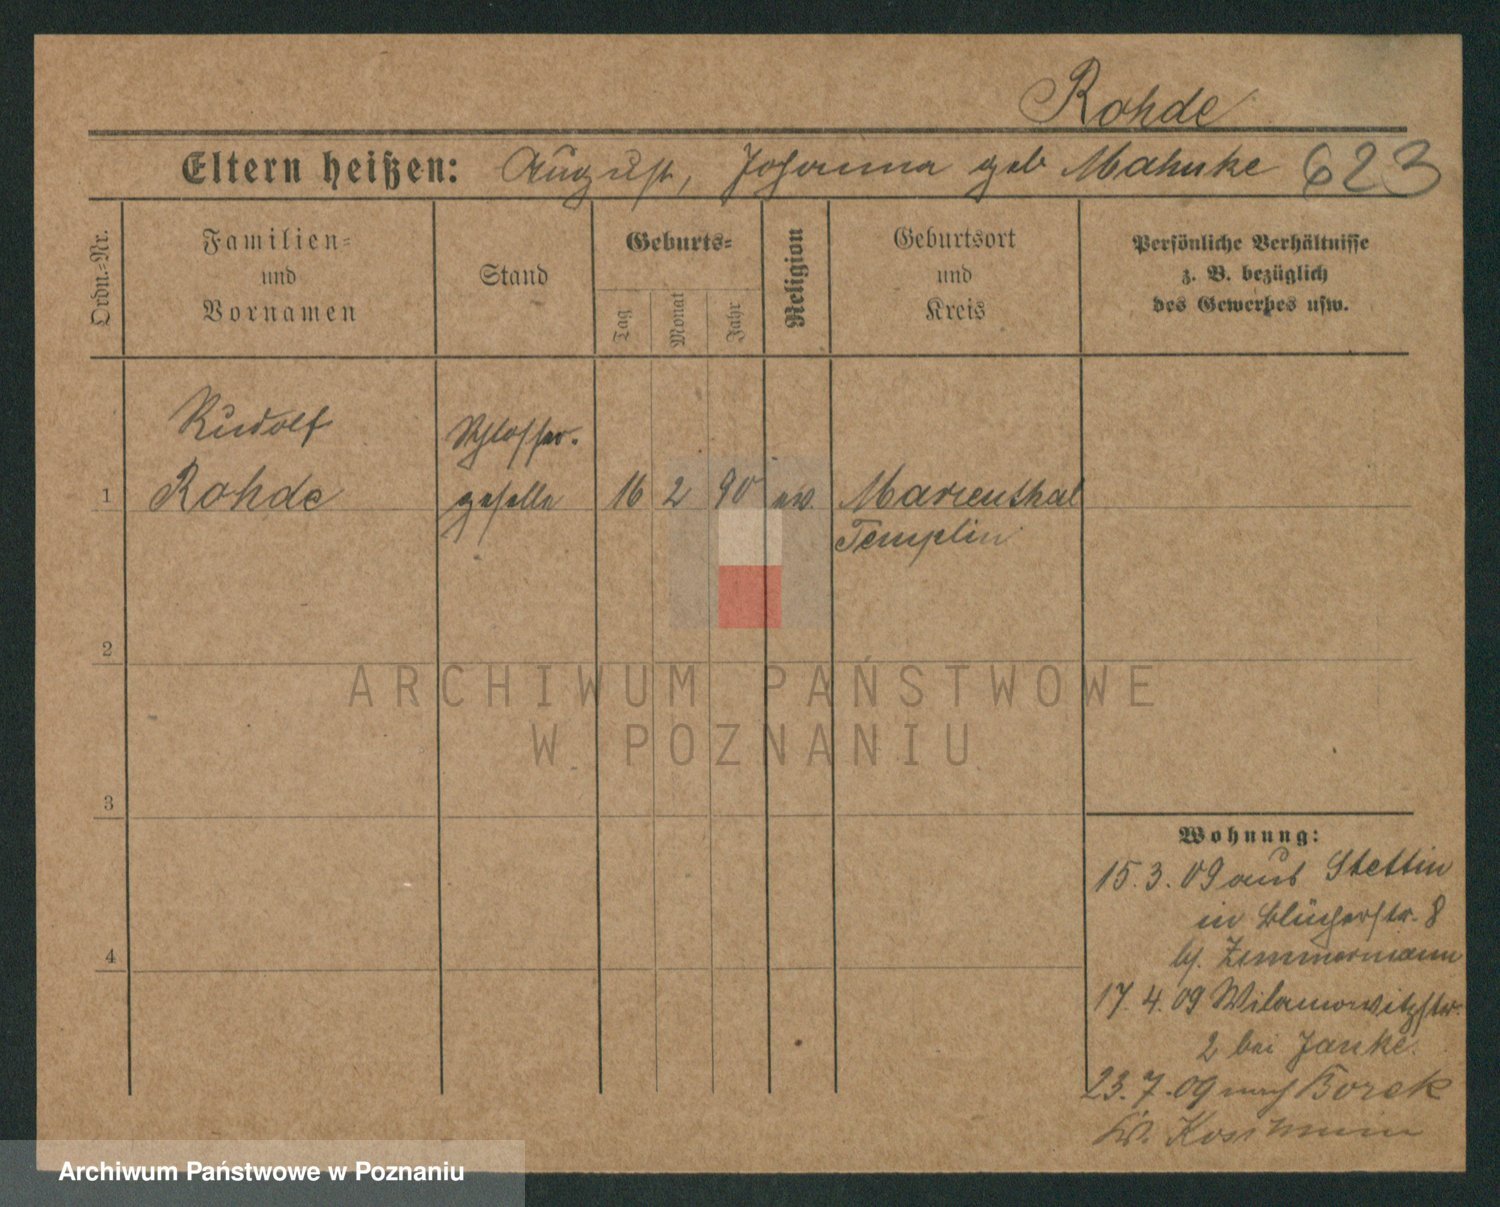 Rohde
Eltern heißen: August, Johanna geb Mahnke 623
Ordn.-Nr.
Familien-
und
Vornamen
Stand
Geburts-
Tag
Monat
Jahr
Religion
Geburtsort
und
Kreis
Persönliche Verhältnisse
z. B. bezüglich
des Gewerbes usw.
Rudolf
Schlosser-
1 Rohde geselle 16 2 90 ev. Marienthal
Templin
2
3
4
Wohnung:
15.3.09 aus Stettin
in Blücherstr. 8
bei Zimmermann
17.4.09 Wilamowitzstr.
2 bei Janke.
23.7.09 nach Borek
Kr. Koschmin
ARCHIWUM PAŃSTWOWE
W POZNANIU
Archiwum Państwowe w Poznaniu